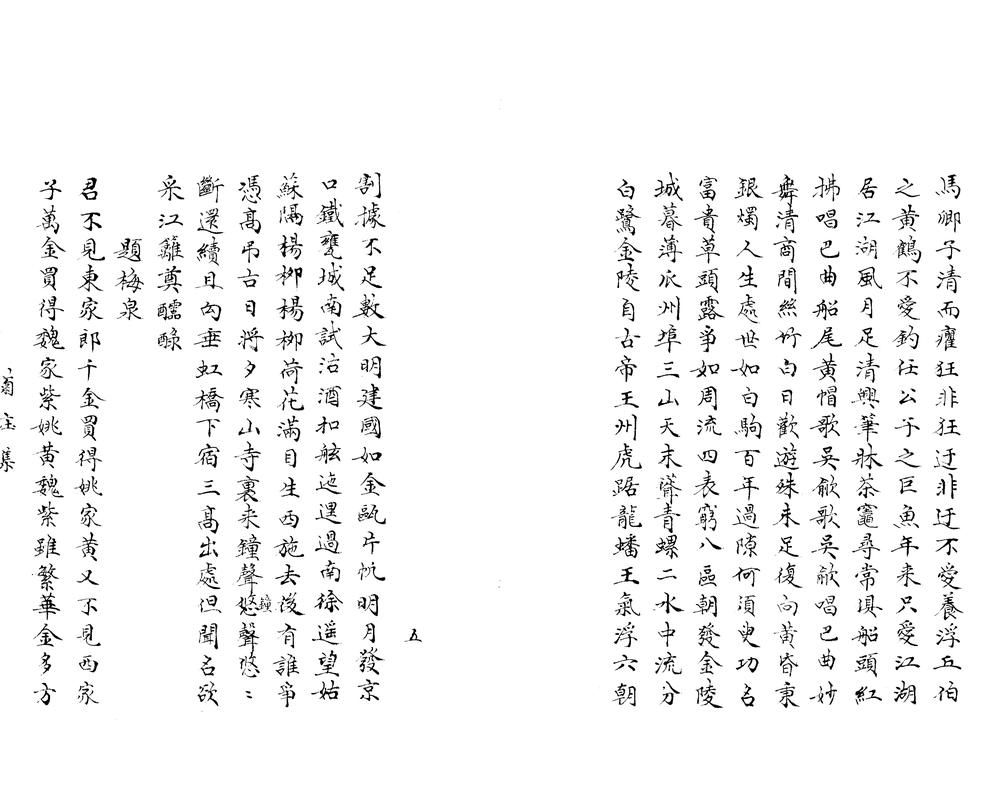 馬卿子清而癯狂非狂迂非迂不愛養浮丘伯
之黃鶴不愛釣任公子之巨魚年来只愛江湖
居江湖風月足清興筆牀茶竈尋常俱船頭紅
拂唱巴曲船尾黃帽歌吳歈歌吳歈唱巴曲妙
舞清商間絲竹白日歡遊殊未足復向黃昏秉
銀燭人生處世如白駒百年過隙何須臾功名
富貴草頭露爭如周流四表窮八區朝發金陵
城暮薄瓜州埠三山天末聳青螺二水中流分
白鷺金陵自古帝王州虎踞龍蟠王氣浮六朝
割據不足數大明建國如金甌片帆明月發京
口鐵甕城南試沽酒扣舷迤邐過南徐遥望姑
蘇隔楊柳楊柳荷花滿目生西施去後有誰爭
憑高吊古日將夕寒山寺裏来鐘聲悠鐘聲悠〻
斷還續且向垂虹橋下宿三高出處但聞名欲
采江蘺奠醽醁
題梅泉
君不見東家郎千金買得姚家黃又不見西家
子萬金買得魏家紫姚黃魏紫雖繁華金多方
五
集